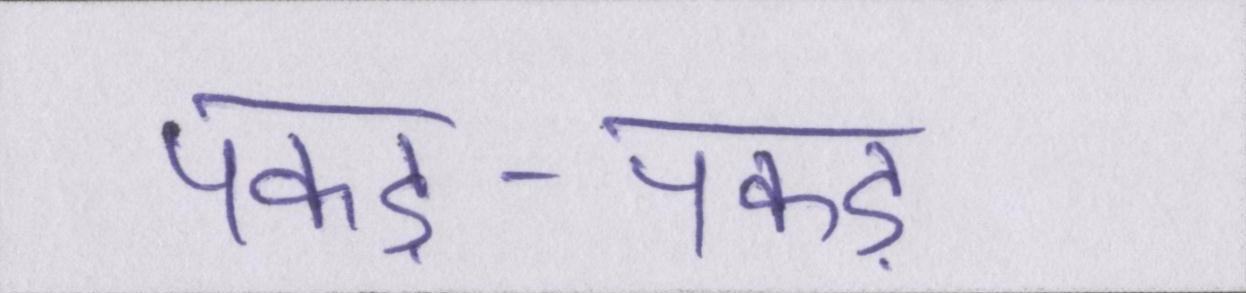 पकड़-पकड़